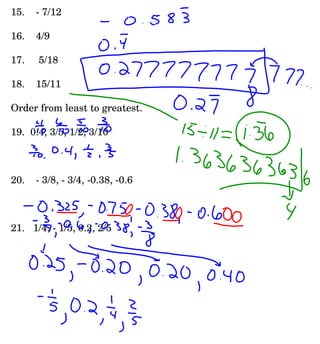 15. - 7/12
- 0.583̅
16. 4/9
0.4̅
17. 5/18
0.27777777 7 777...
8
0.27̅
18. 15/11
15÷11= 1.3̅6̅
1.36363636 3 6
4
Order from least to greatest.
19. 0.4, 3/5, 1/2, 3/10
4/10 6/10 5/10 3/10
3/10, 0.4, 1/2, 3/5
20. - 3/8, - 3/4, -0.38, -0.6
-0.325, -0.750 -0.380, -0.600
-3/4, -0.6, -0.38, -3/8
21. 1/4, - 1/5, 0.2, 2/5
0.25, -0.20, 0.20, 0.40
-1/5, 0.2, 1/4, 2/5